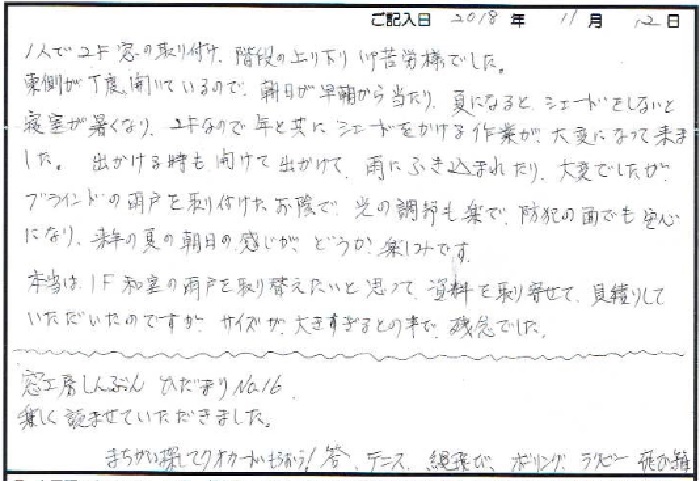 ご記入日 2018 年 11 月 12 日
1人で2F窓の取り付け、階段の上り下り御苦労様でした。
東側が丁度、開いているので、朝日が早朝から当たり、夏になると、シェードをしないと
寝室が暑くなり、2Fなので年と共にシェードをかける作業が、大変になって来ま
した。 出かける時も開けて出かけて、雨にふき込まれたり、大変でしたが、
ブラインドの雨戸を取り付けたお陰で、光の調節も楽で、防犯の面でも安心
になり、来年の夏の朝日の感じが、どうか、楽しみです。
本当は、1F和室の雨戸を取り替えたいと思って、資料を取り寄せて、見積りして
いただいたのですが、サイズが、大きすぎるとの事で、残念でした。
窓工房しんぶん ひだまりNo.16
楽しく読ませていただきました。
まちがい探してクオカードいもらおう! 答、テニス、縄飛び、ボーリング、ラグビー